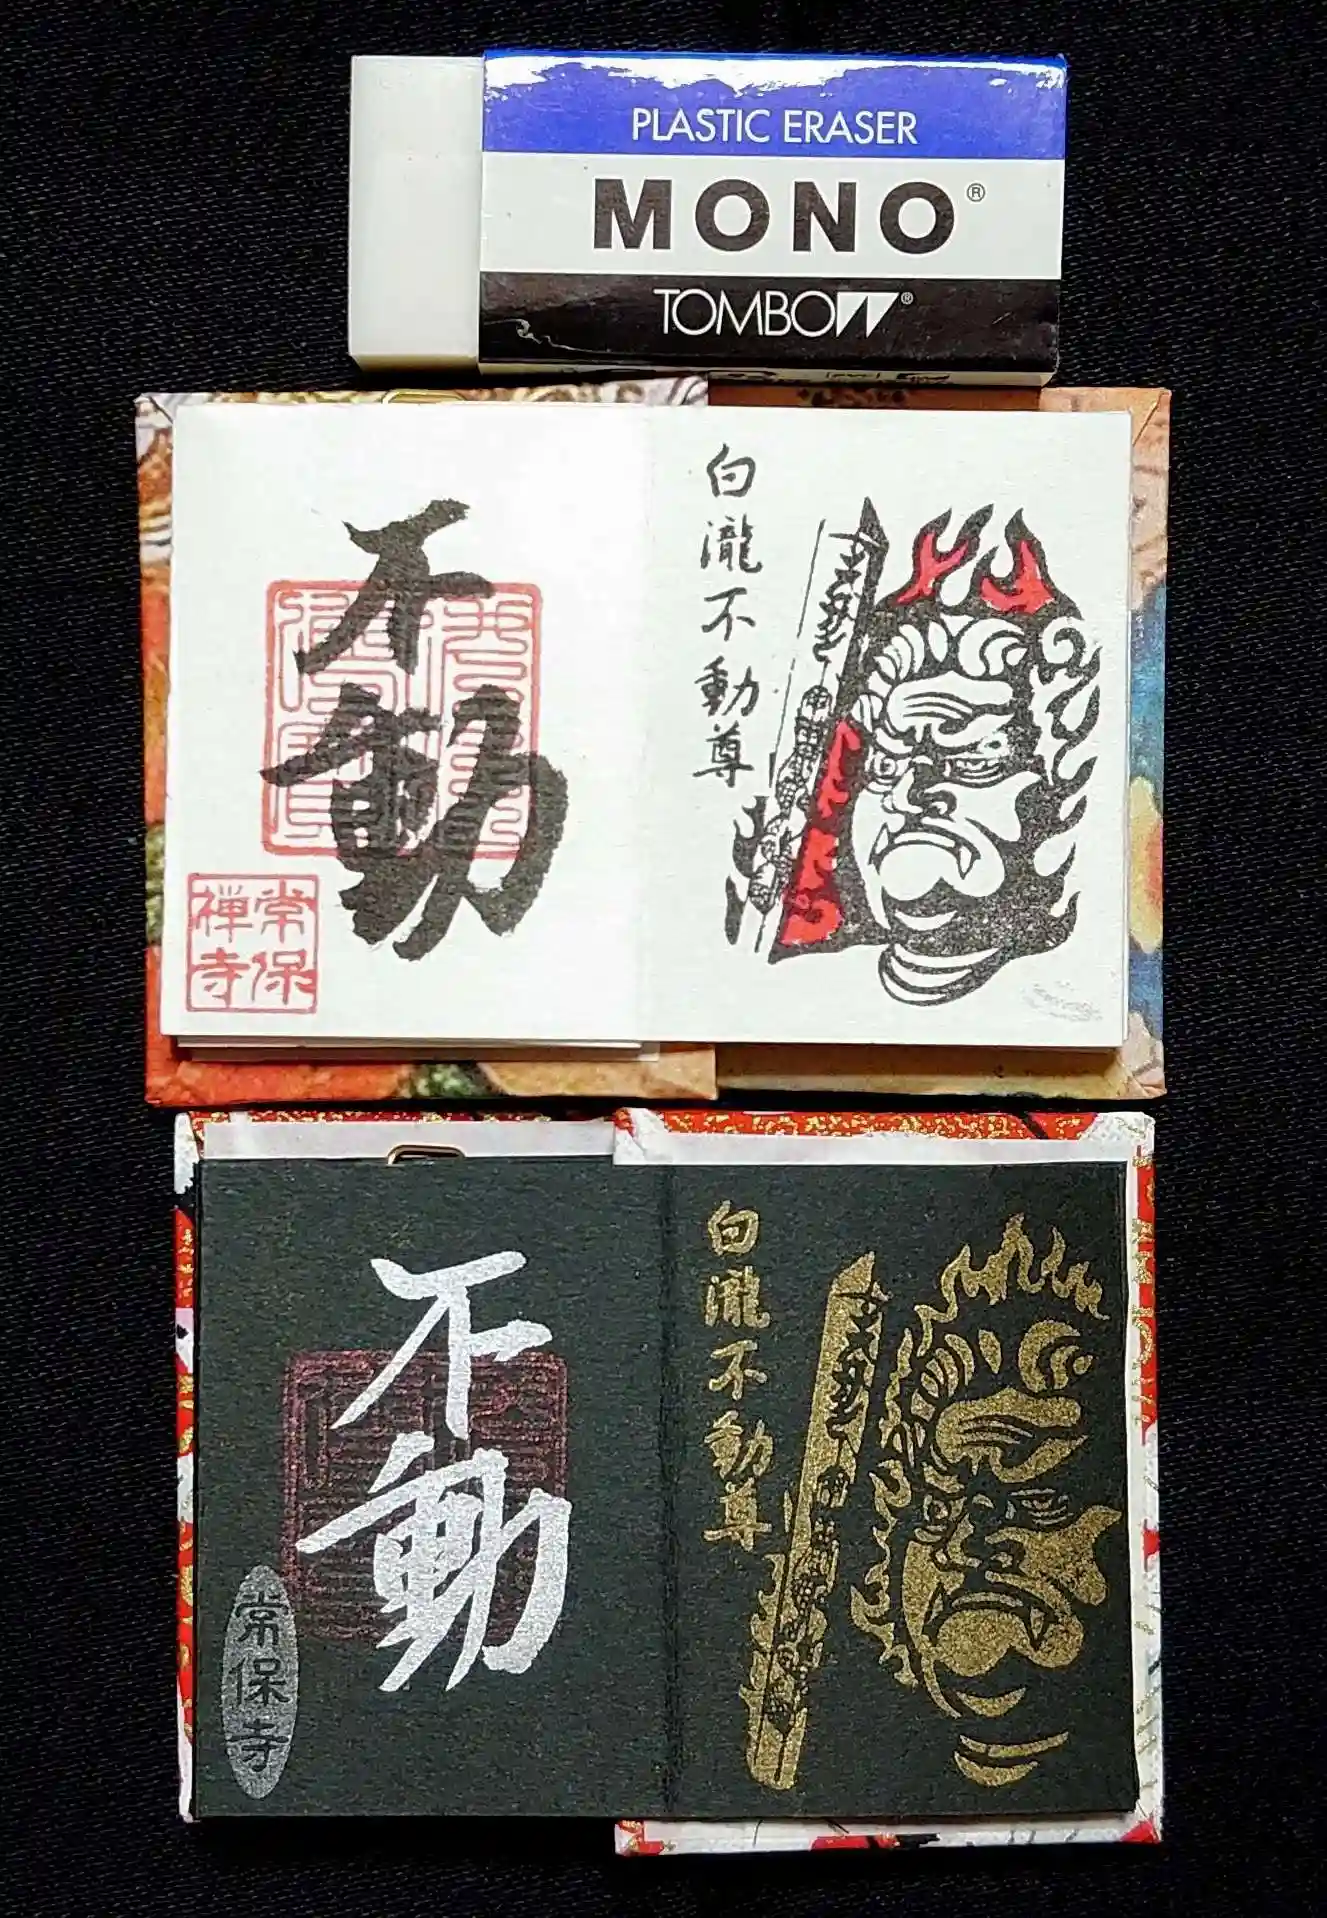 PLASTIC ERASER
MONO®
TOMBOW®
白瀧不動尊
不動
常保
禅寺
白瀧不動尊
不動
常保寺